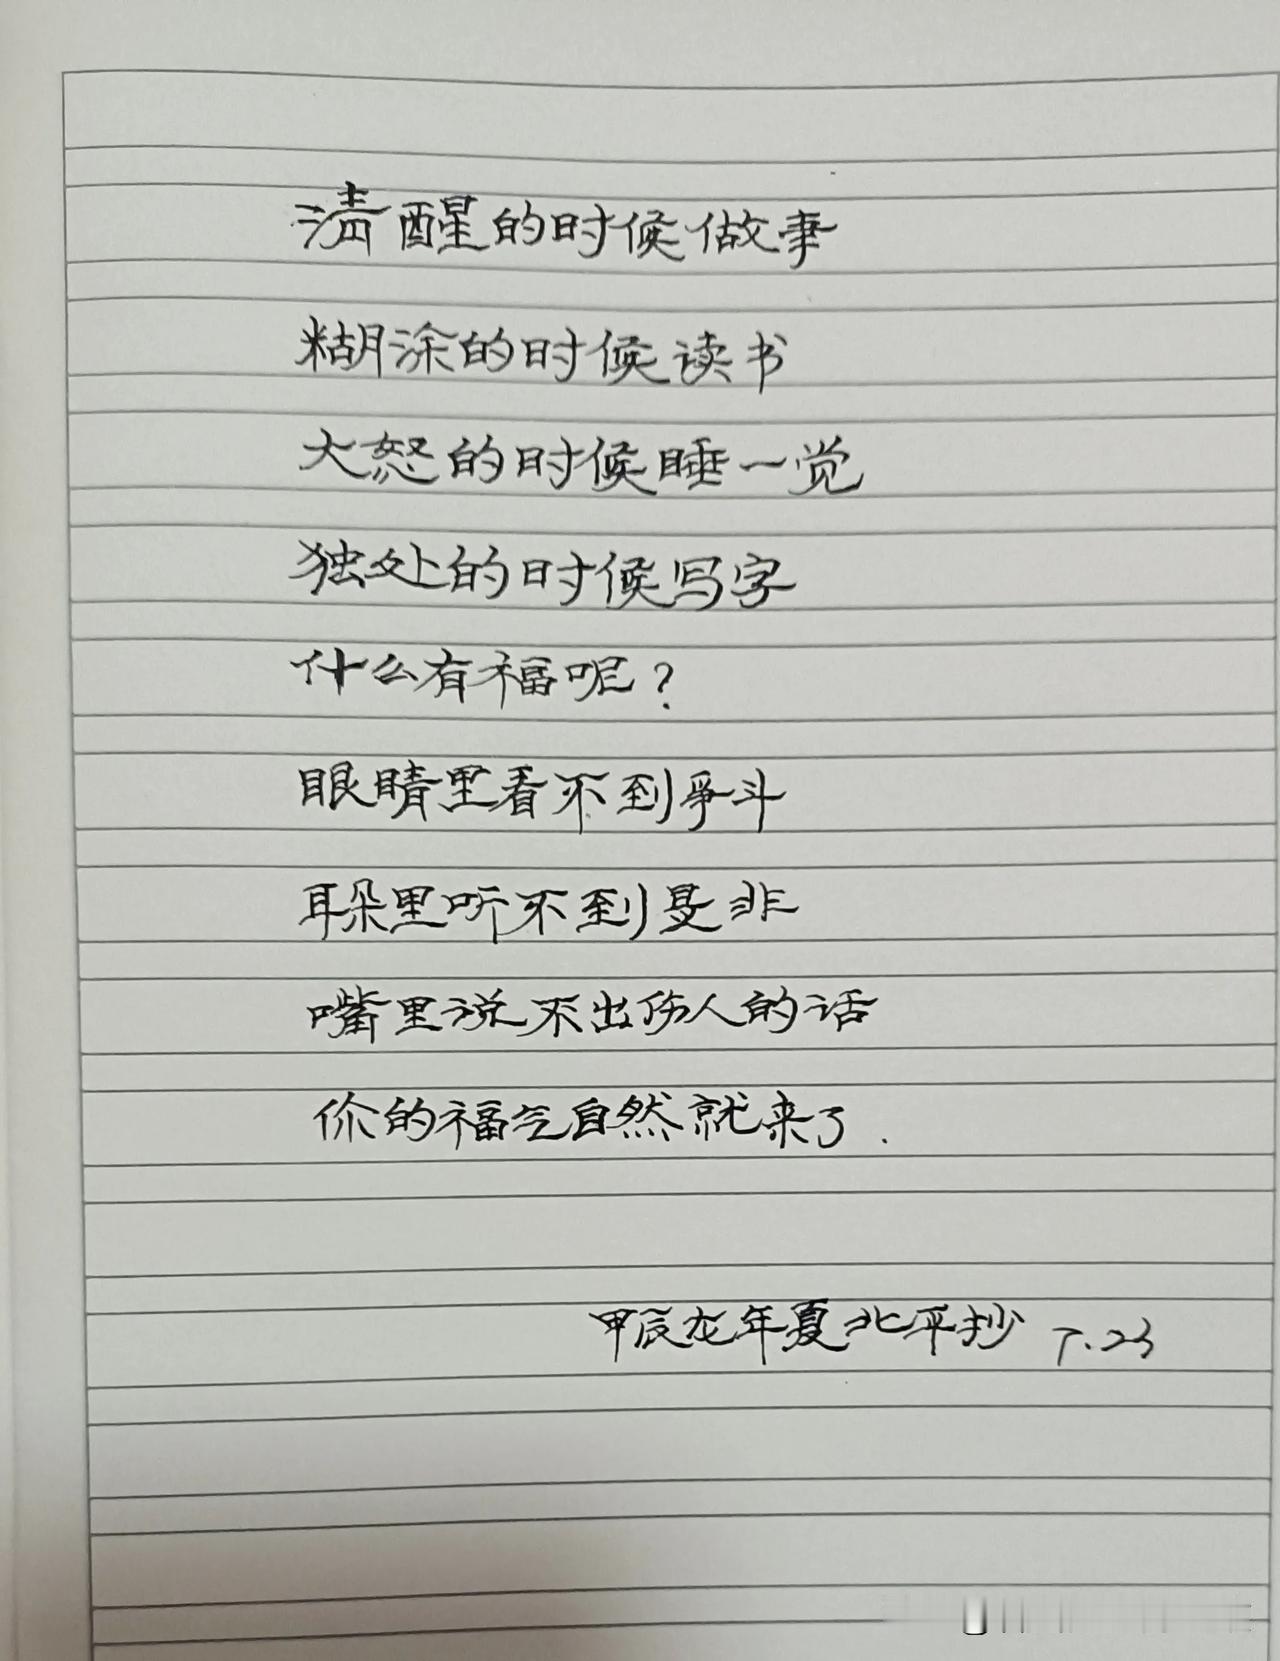 清醒的时候做事
糊涂的时候读书
大怒的时候睡一觉
独处的时候写字
什么有福呢？
眼睛里看不到争斗
耳朵里听不到是非
嘴里说不出伤人的话
你的福气自然就来了.
甲辰龙年夏北平抄 7.23